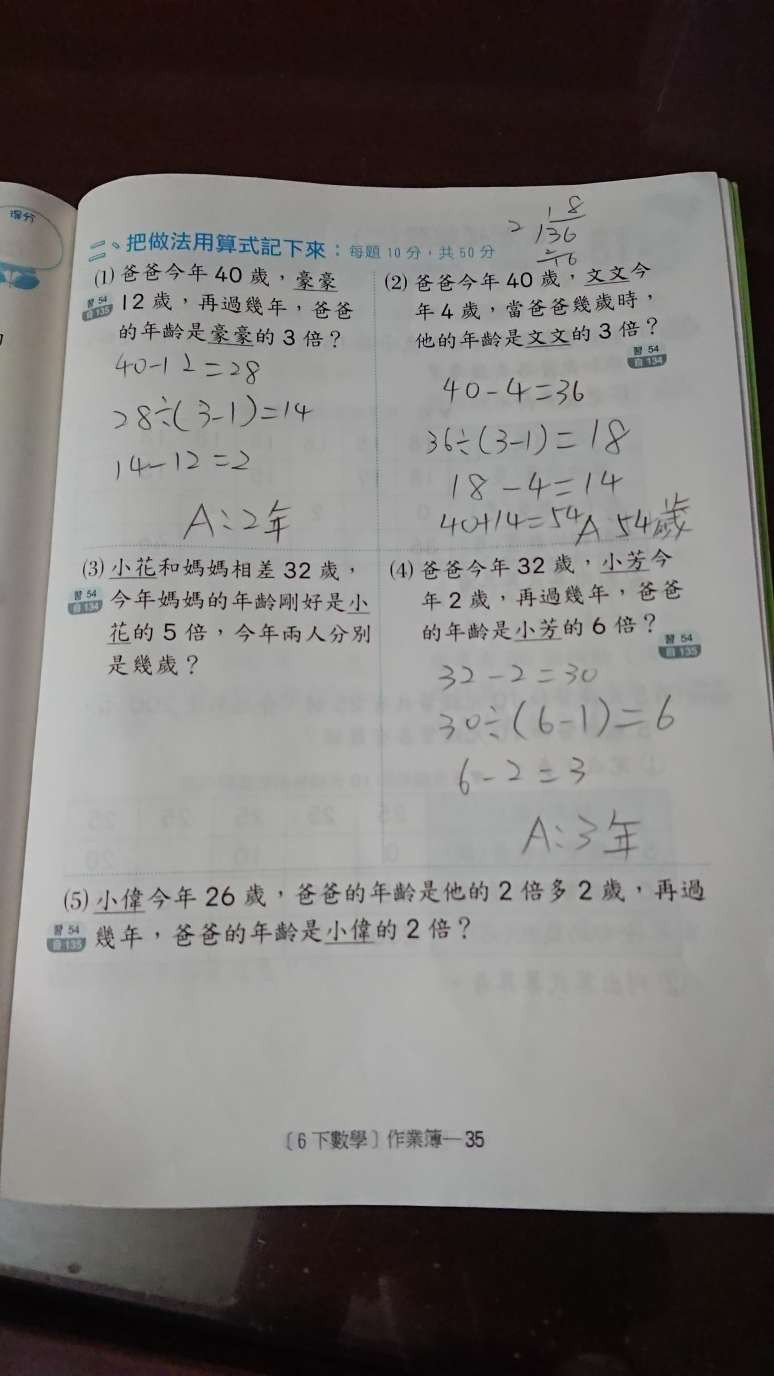 得分
二、把做法用算式記下來：每題 10 分，共 50 分
18
2 136
(1) 爸爸今年 40 歲，豪豪
習 54
自 135
12 歲，再過幾年，爸爸
的年齡是豪豪的 3 倍？
40-12=28
28÷(3-1)=14
14-12=2
A:2年
(2) 爸爸今年 40 歲，文文今
年 4 歲，當爸爸幾歲時，
他的年齡是文文的 3 倍？
習 54
自 134
40-4=36
36÷(3-1)=18
18-4=14
40+14=54 A 54歲
(3) 小花和媽媽相差 32 歲，
習 54
自 134
今年媽媽的年齡剛好是小
花的 5 倍，今年兩人分別
是幾歲？
(4) 爸爸今年 32 歲，小芳今
年 2 歲，再過幾年，爸爸
的年齡是小芳的 6 倍？
習 54
自 135
32-2=30
30÷(6-1)=6
6-2=3
A:3年
(5) 小偉今年 26 歲，爸爸的年齡是他的 2 倍多 2 歲，再過
習 54
自 135
幾年，爸爸的年齡是小偉的 2 倍？
〔6 下數學〕作業簿—35